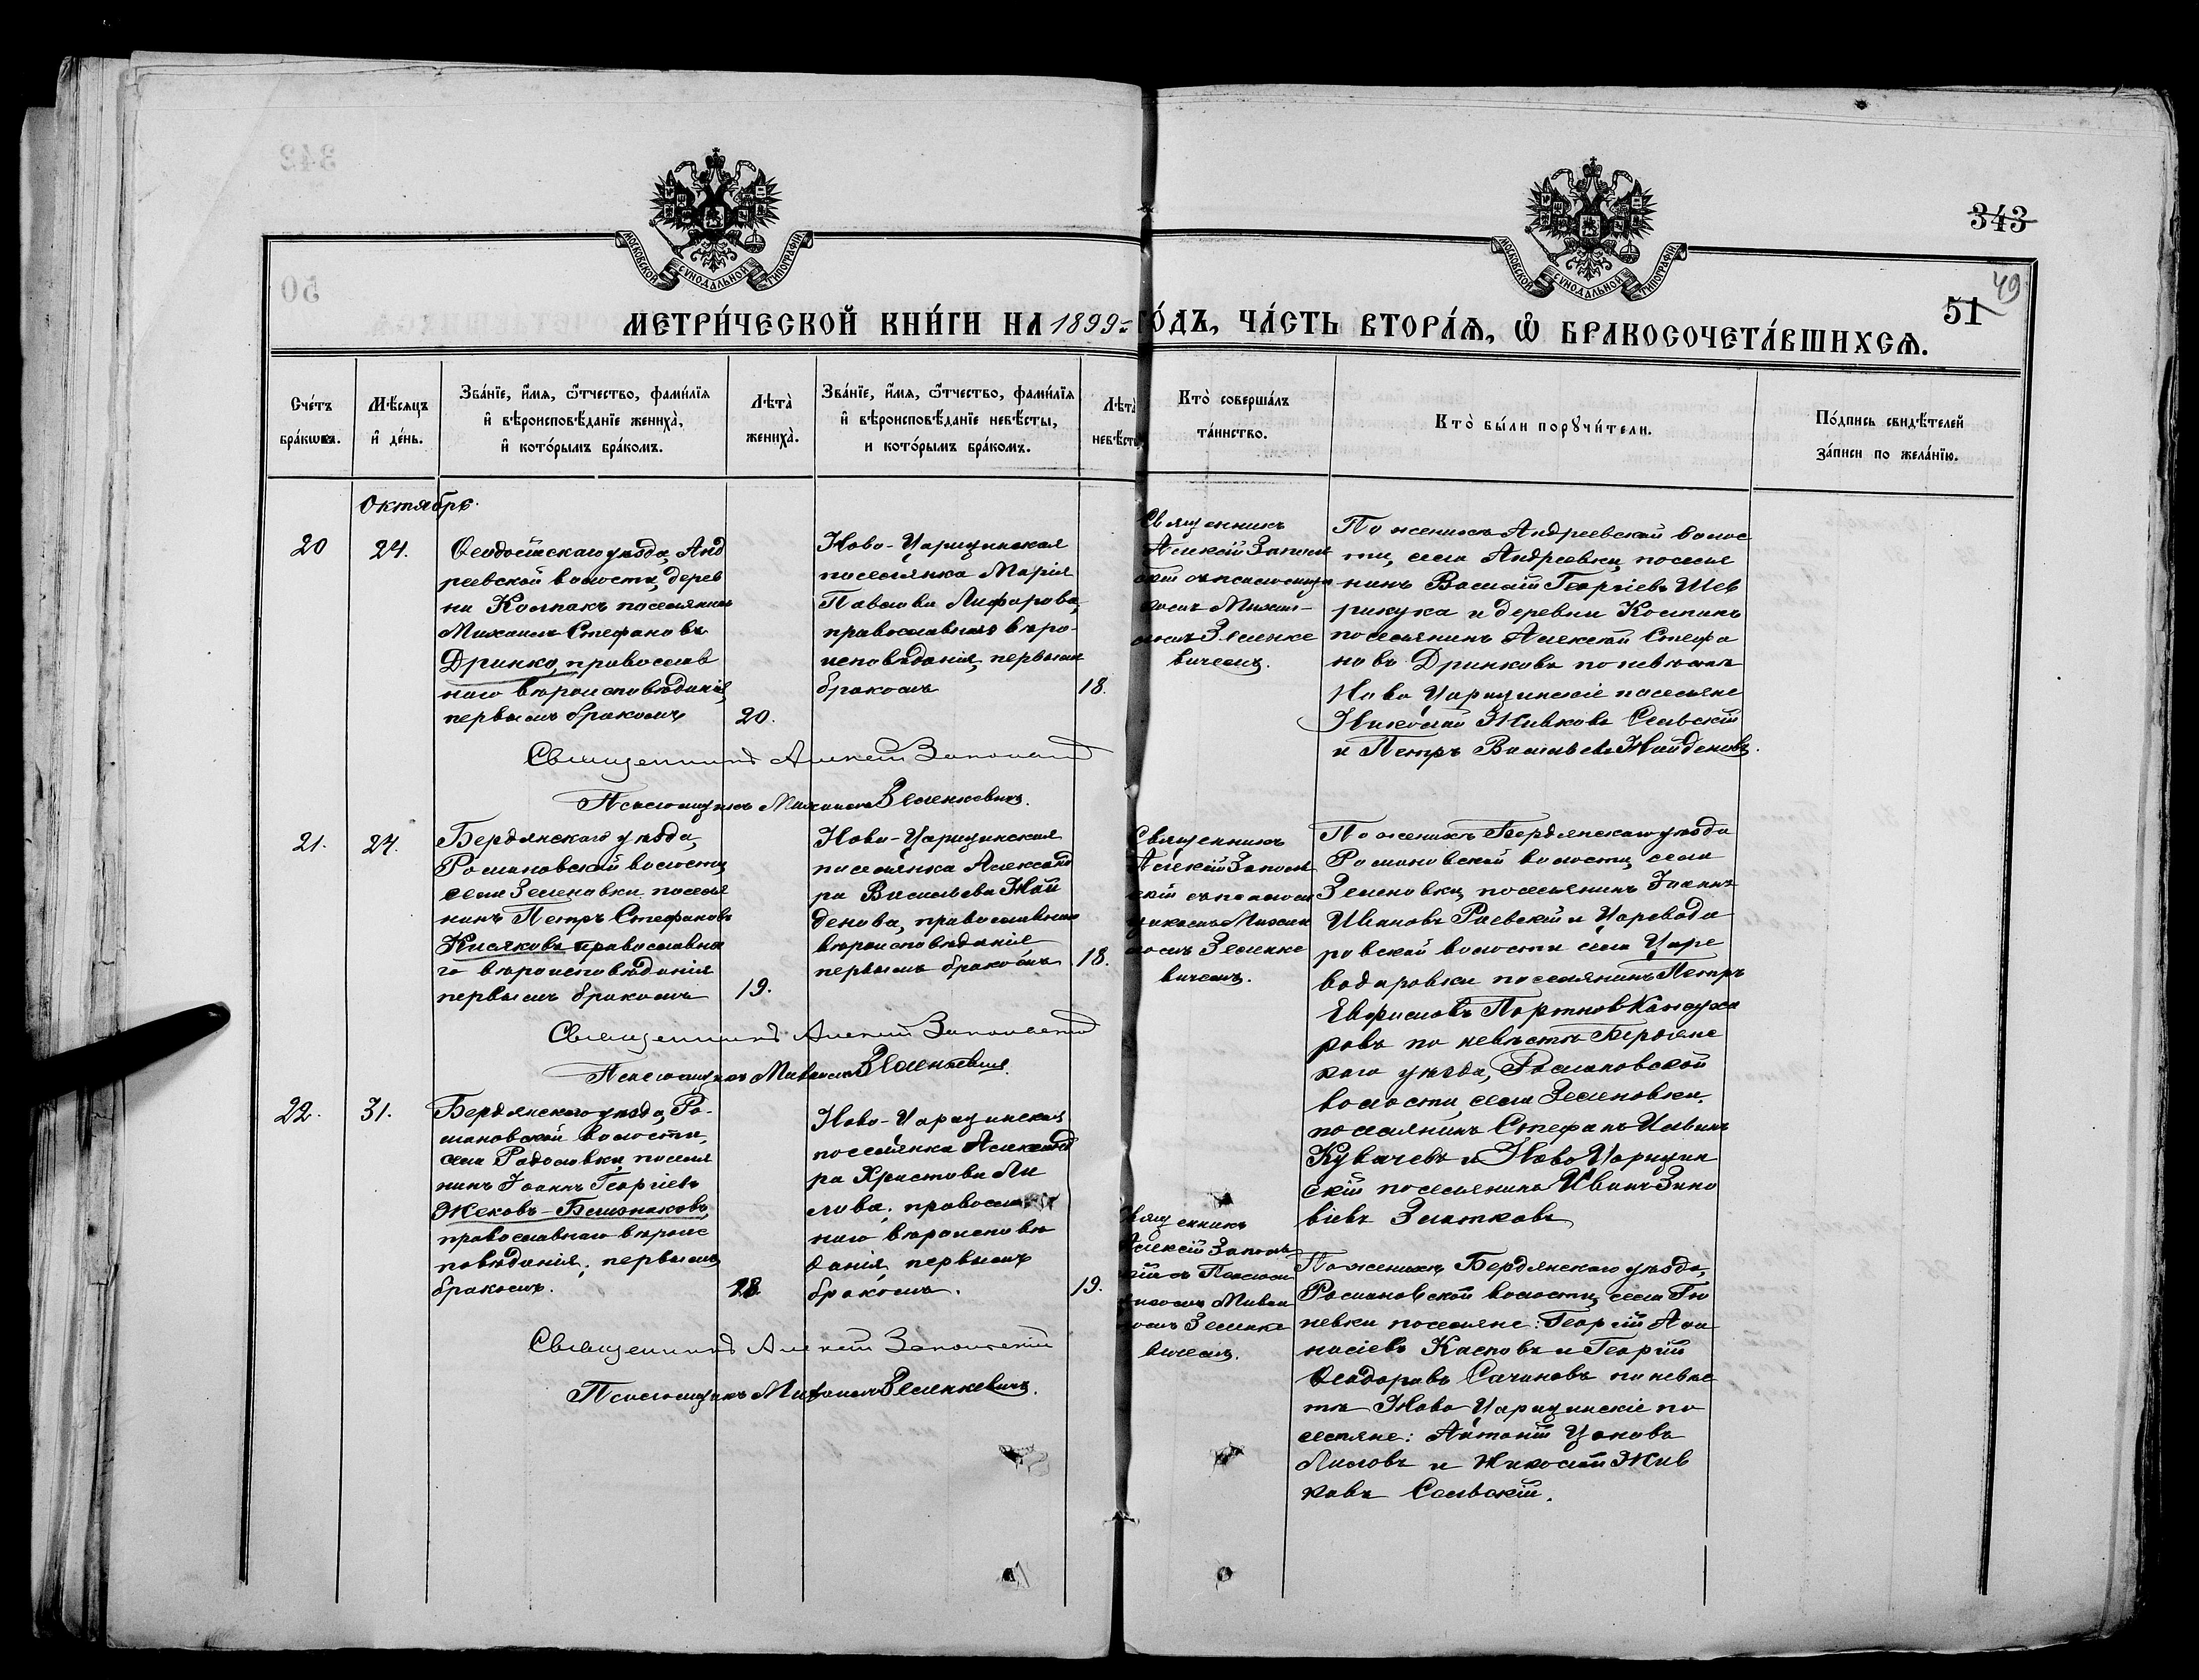 343
50
343
49
51
МОСКОВСКОЙ СѴНОДАЛЬНОЙ ТИПОГРАФІИ
МОСКОВСКОЙ СѴНОДАЛЬНОЙ ТИПОГРАФІИ
МЕТРИ́ЧЕСКОЙ КНИ́ГИ НА 1899 ГО́ДЪ, ЧА́СТЬ ВТОРА́Ѧ, Ѽ БРАКОСОЧЕТА́ВШИХСѦ.
Сче́тъ
бра́кѡвъ.
Мѣ́сяцъ
и҆ де́нь.
Зва́нїе, и҆́мя, ѻ҆́тчество, фами́лїя
и҆ вѣроисповѣ́данїе жениха̀,
и҆ кото́рымъ бра́комъ.
Лѣта̀
жениха̀.
Зва́нїе, и҆́мя, ѻ҆́тчество, фами́лїя
и҆ вѣроисповѣ́данїе невѣ́сты,
и кото́рымъ бра́комъ.
Лѣта̀
невѣ́сты
Кто̀ соверша́лъ
та́инство.
Кто̀ бы́ли порꙋчи́тели.
По́дпись свидѣ́телей
за́писи по жела́нїю.
Октябрь.
20
24.
Ѳеодосійскаго уѣзда, Анд
реевской волости, дерев
ни Колпакъ поселянинъ
Михаилъ Стефановъ
Дринко, православ
наго вѣроисповѣданія,
первымъ бракомъ
20.
Ново-Царицинская
поселянка Марія
Павлова Лифарова,
православнаго вѣро-
исповѣданія, первымъ
бракомъ
18.
Священникъ
Алексій Заполь
скій съ псаломщи
комъ Михаи-
ломъ Зеленке
вичемъ.
По женихѣ Андреевской волос
ти, села Андреевки, поселя
нинъ Василій Георгіевъ Шев
рикука и деревни Колпакъ
поселянинъ Алексѣй Стефа
новъ Дринковъ по невѣстѣ
Ново Царицинскіе поселяне
Николай Живковъ Сельскій
и Петръ Васильевъ Найденовъ.
Священникъ Алексій Запольскій
Псаломщикъ Михаилъ Зеленкевичъ.
21.
24.
Бердянскаго уѣзда,
Романовской волости,
села Зеленовки поселя
нинъ Петръ Стефановъ
Кисяковъ православна
го вѣроисповѣданія
первымъ бракомъ
19.
Ново-Царицинская
поселянка Александ
ра Васильева Най
денова, православнаго
вѣроисповѣданія
первымъ бракомъ
18.
Священникъ
Алексій Заполь
скій съ псалом
щикомъ Михаи
ломъ Зеленке
вичемъ.
По женихѣ Бердянскаго уѣзда
Романовской волости, села
Зеленовки, поселянинъ Іоаннъ
Ивановъ Раевскій и Цареводa
ровской волости села Царе
водаровки поселянинъ Петръ
Евфимовъ Портнов
ровъ по невѣстѣ Бердянс
каго уѣзда, Романовской
волости, села Зеленовки.
поселянинъ Стефанъ Ильинъ
Кувачевъ и Ново Царицин
скій поселянинъ Иванъ Зино
віевъ Златковъ
Священникъ Алексій Запольскій
Псаломщикъ Михаилъ Зеленкевичъ.
22.
31.
Бердянскаго уѣзда, Ро-
мановской волости,
села Радоловки, поселя
нинъ Іоаннъ Георгіевъ
Жековъ-Бешонаковъ,
православнаго вѣроис
повѣданія, первымъ
бракомъ.
18.
Ново-Царицинская
поселянка Александ
ра Христова Ли
лова, православ
наго вѣроисповѣ
данія, первымъ
бракомъ.
19.
Священникъ
Алексій Заполь
скій съ Псалом
щикомъ Михаи
ломъ Зеленке
вичемъ.
По женихѣ Бердянскаго уѣзда,
Романовской волости, села Гю
невки поселяне: Георгій Аѳа
насіевъ Касповъ и Георгій
Ѳеодоровъ Сачановъ по невѣс
тѣ Ново Царицинскіе по
селяне: Антоній Цоновъ
Лиловъ и Николай Жив
ковъ Сельскій.
Священникъ Алексій Запольскій
Псаломщикъ Михаилъ Зеленкевичъ.